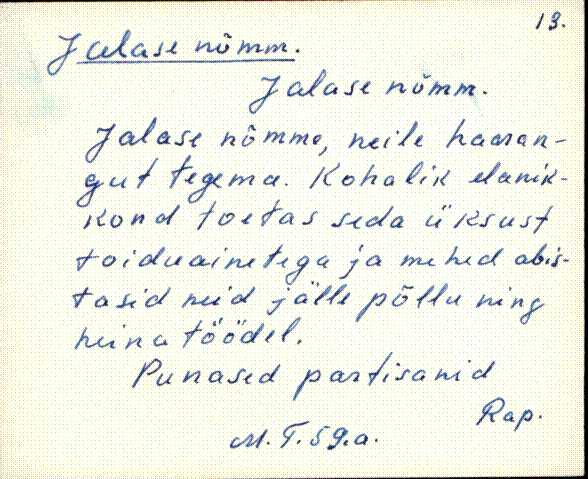 13.
Jalase nõmm.
Jalase nõmm.
Jalase nõmme, neile haaran-
gut tegema. Kohalik elanik-
kond toetas seda üksust
toiduainetega ja mehed abis-
tasid neid jälle põllu ning
heina töödel.
Punased partisanid
Rap.
M. T. 59. a.